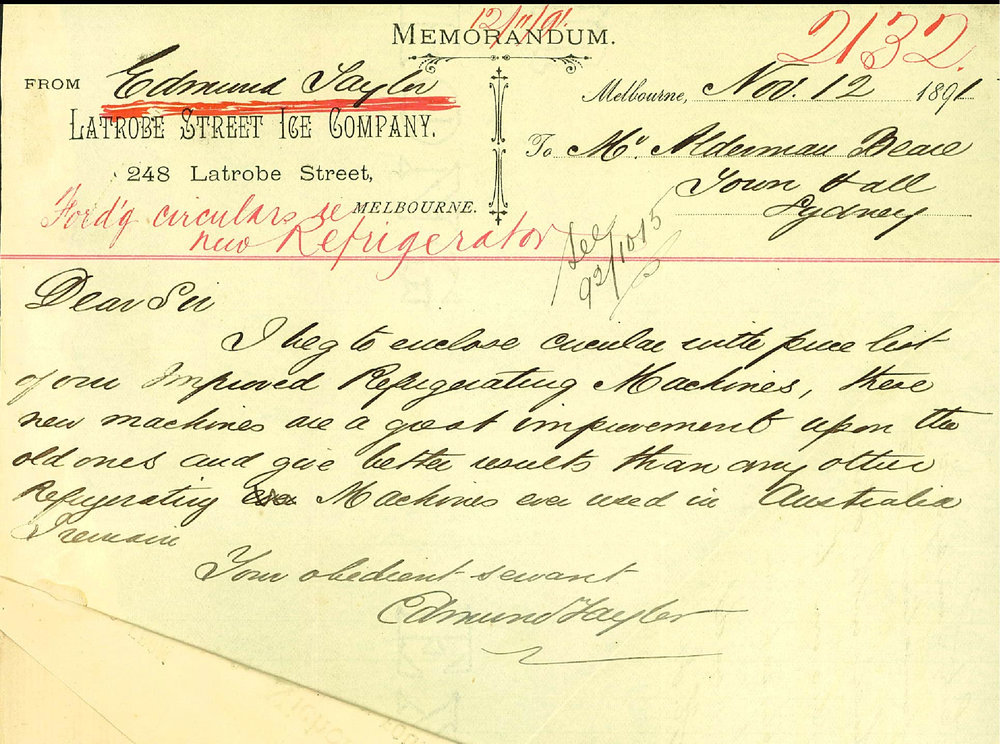 12/11/91
MEMORANDUM.
2132.
FROM Edmund Taylor
LATROBE STREET ICE COMPANY.
248 Latrobe Street,
MELBOURNE.
Ford'g circulars re
new Refrigerator
Melbourne, Nov. 12 1891
To Mr Alderman Beare
Town Hall
Sydney
See
92/1015
Dear Sir
I beg to enclose circular with price list
of our Improved Refrigerating Machines, these
new machines are a great improvement upon the
old ones and give better results than any other
Refrigerating Machines ever used in Australia
I remain
Your obedient servant
Edmund Taylor